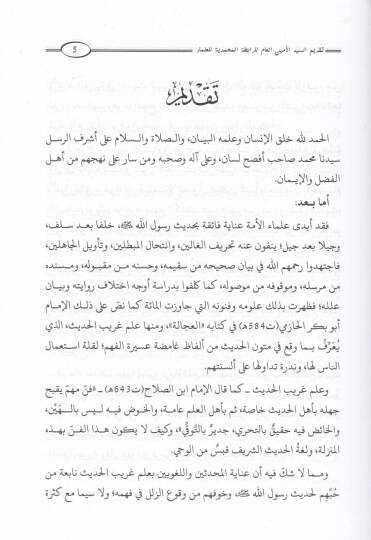 تقديم السيد الأمين العام للرابطة المحمدية للعلماء
5
تقديم
الحمد لله خلق الإنسان وعلمه البيان، والصلاة والسلام على أشرف الرسل
سيدنا محمد صاحب أفصح لسان، وعلى آله وصحبه ومن سار على نهجهم من أهل
الفضل والإيمان.
أما بعد:
فقد أبدى علماء الأمة عناية فائقة بحديث رسول الله ﷺ، خلفا بعد سلف،
وجيلا بعد جيل؛ ينفون عنه تحريف الغالين، وانتحال المبطلين، وتأويل الجاهلين،
فاجتهدوا رحمهم الله في بيان صحيحه من سقيمه، وحسنه من مقبوله، ومسنده
من مرسله، وموقوفه من موصوله، كما كلفوا بدراسة أوجه اختلاف رواياته وبيان
علله؛ فظهرت بذلك علومه وفنونه التي جاوزت المائة كما نصّ على ذلك الإمام
أبو بكر الحازمي(ت584ه) في كتابه «العجالة»، ومنها علم غريب الحديث، الذي
يُعَرِّفُ بما وقع في متون الحديث من ألفاظ غامضة عسيرة الفهم؛ لقلة استعمال
الناس لها، وندرة تداولها على ألسنتهم.
وعلم غريب الحديث ـ كما قال الإمام ابن الصلاح(ت643ه) ـ «فنّ مهمّ يقبح
جهله بأهل الحديث خاصة، ثم بأهل العلم عامة، والخوض فيه ليس بالهيِّن،
والخائض فيه حقيقٌ بالتحري، جديرٌ بالتَّوقِّي»، وكيف لا يكون هذا الفنّ بهذه
المنزلة، ولغةُ الحديث الشريف قبسٌ من الوحي.
ومما لا شكّ فيه أن عناية المحدثين واللغويين بعلم غريب الحديث نابعة من
حُبِّهِم لحديث رسول الله ﷺ، وخوفهم من وقوع الزلل في فهمه؛ ولا سيما مع كثرة